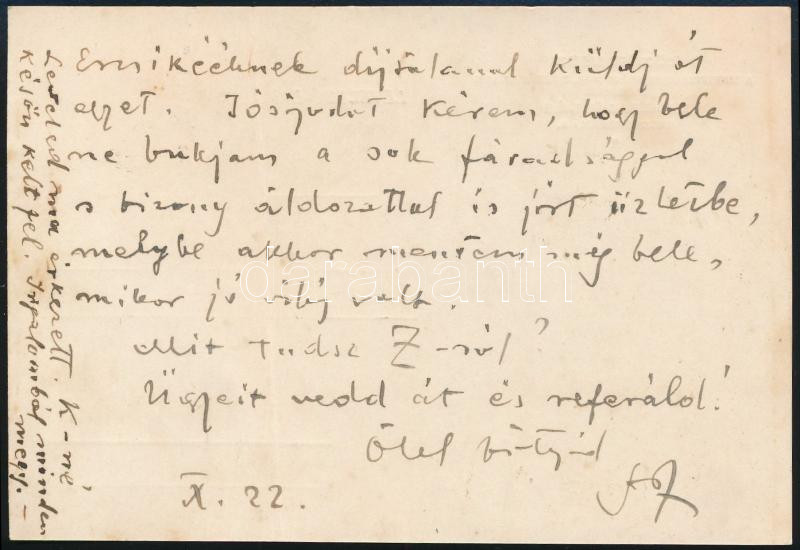 Ersikééknek díjtalanul küldj át
egyet. Jósgodat kérem, hogy bele
ne bukjam a sok fáradsággal
s bizony áldozattal is járt üzletbe,
melybe akkor mentem még bele,
mikor jó világ volt.
Mit tudsz Z-ről?
Ügyeit vedd át és referáld!
Ölel bátyád
X. 22.
Leveled ma érkezett. K-né
későn kelt fel. Irgalomból minden
megy. -
darabanth